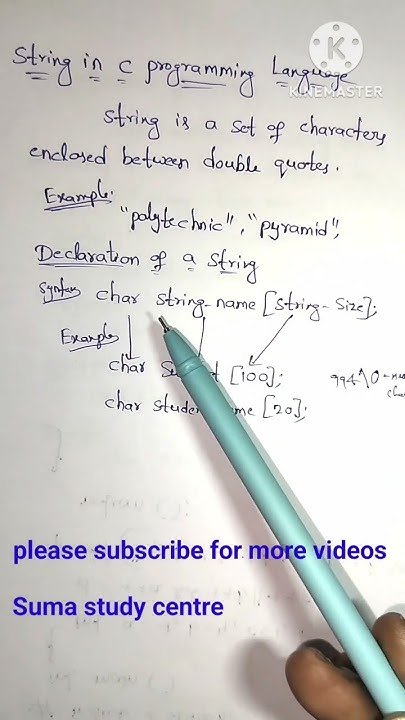 String in C programming Language
KINEMASTER
String is a set of characters
enclosed between double quotes.
Example:
"polytechnic", "pyramid",
Declaration of a string
Syntax char string-name [string-size];
Example
char [100];
99+\0
char [20];
please subscribe for more videos
Suma study centre